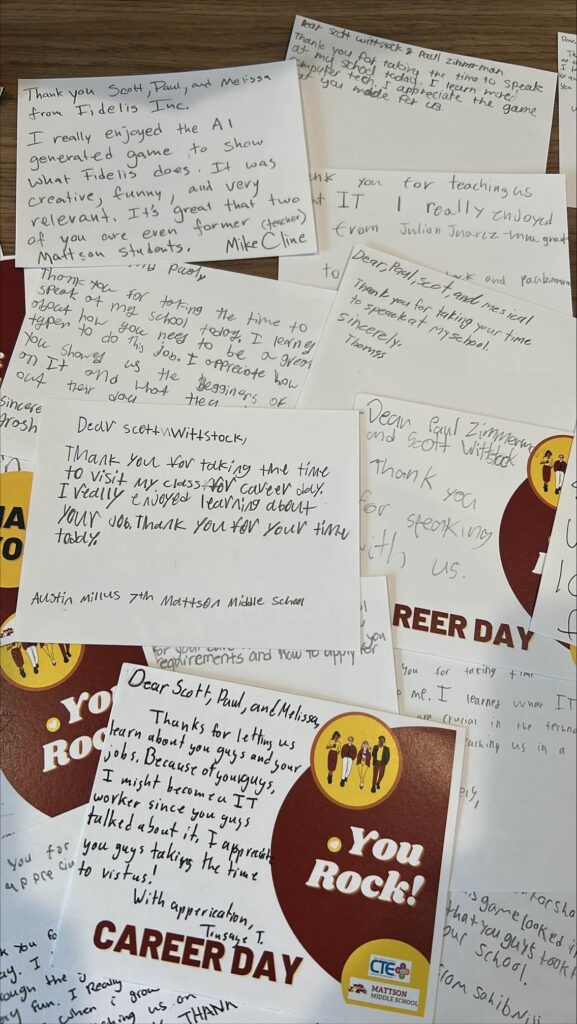 Dear Scott Wittstock & Paul Zimmerman
Thank you for taking the time to speak
at my school today. I learn more
computer tech I appreciate the game
you made for us.
Thank you Scott, Paul, and Melissa
from Fidelis Inc.
I really enjoyed the AI
generated game to show
what Fidelis does. It was
creative, funny, and very
relevant. It's great that two
of you are even former (teacher)
Mattson students. Mike Cline
you for teaching us
IT I really enjoyed
from Julian
and
Thank you for taking the time to
speak at my school today. I learned
about how you need to be a great
typer to do this job. I appreciate how
You showed us the Begginers of
on It and what they
out their day
sincere
Dear, Paul, Scot, and mesical
Thank you for taking your time
to speak at my school.
sincerely,
Thomas
Dear Scott Wittstock,
Thank you for taking the time
to visit my class for career day.
I really enjoyed learning about
your job. Thank you for your time
today.
Austin Millus 7th Mattson Middle School
Dear Paul Zimmerm
and Scott Wittstock
Thank you
for speaking
with us.
CAREER DAY
requirements and how to apply for
you for taking time
me. I learned what IT
are crucial in the
us in a
You
Rock
Dear Scott, Paul, and Melissa,
Thanks for letting us
learn about you guys and your
jobs. Because of you guys,
I might become a IT
worker since you guys
talked about it. I appreciate
you guys taking the time
to vist us!
With apperication,
Tinsaye T.
CAREER DAY
You
Rock!
CTE
MATTSON
MIDDLE SCHOOL
you for
apprecia
game looked
that you guys took
our school.
from Sahib
you for
day. I
through the
fun. I Really
when i grow
us on
THANK